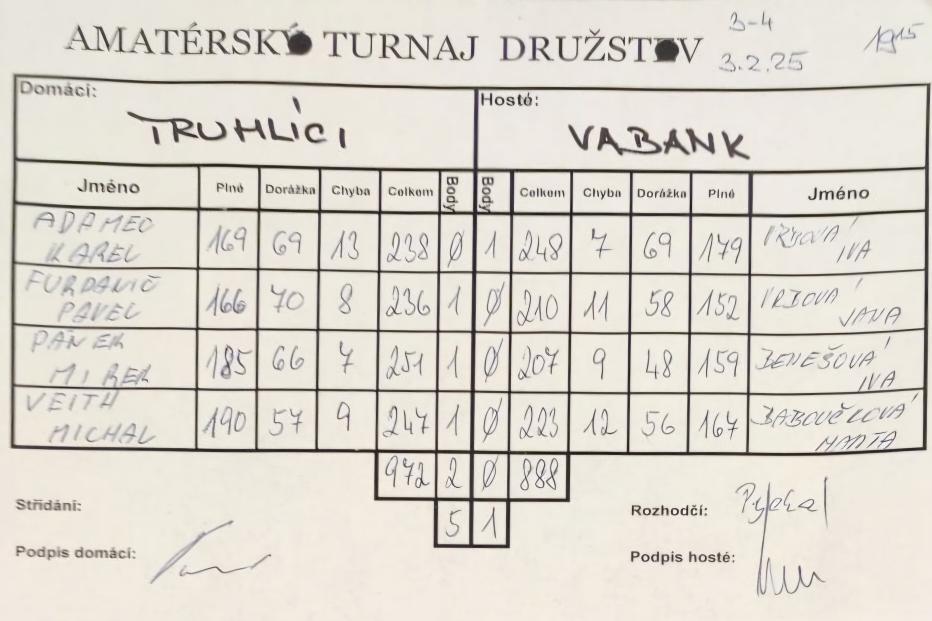 AMATÉRSKÝ TURNAJ DRUŽSTOV
3-4
3.2.25
19¹⁵
Domácí: Hosté:
TRUHLÍCI VABANK
Jméno Plné Dorážka Chyba Celkem Body Body Celkem Chyba Dorážka Plné Jméno
ADAMEC KAREL 169 69 13 238 0 1 248 7 69 179 IVA
FURDANIČ PAVEL 166 70 8 236 1 0 210 11 58 152 JANA
PANEK MIREK 185 66 7 251 1 0 207 9 48 159 BENEŠOVÁ IVA
VEITH MICHAL 190 57 9 247 1 0 223 12 56 167
972 2 0 888
5 1
Střídání:
Rozhodčí:
Podpis domácí:
Podpis hosté: